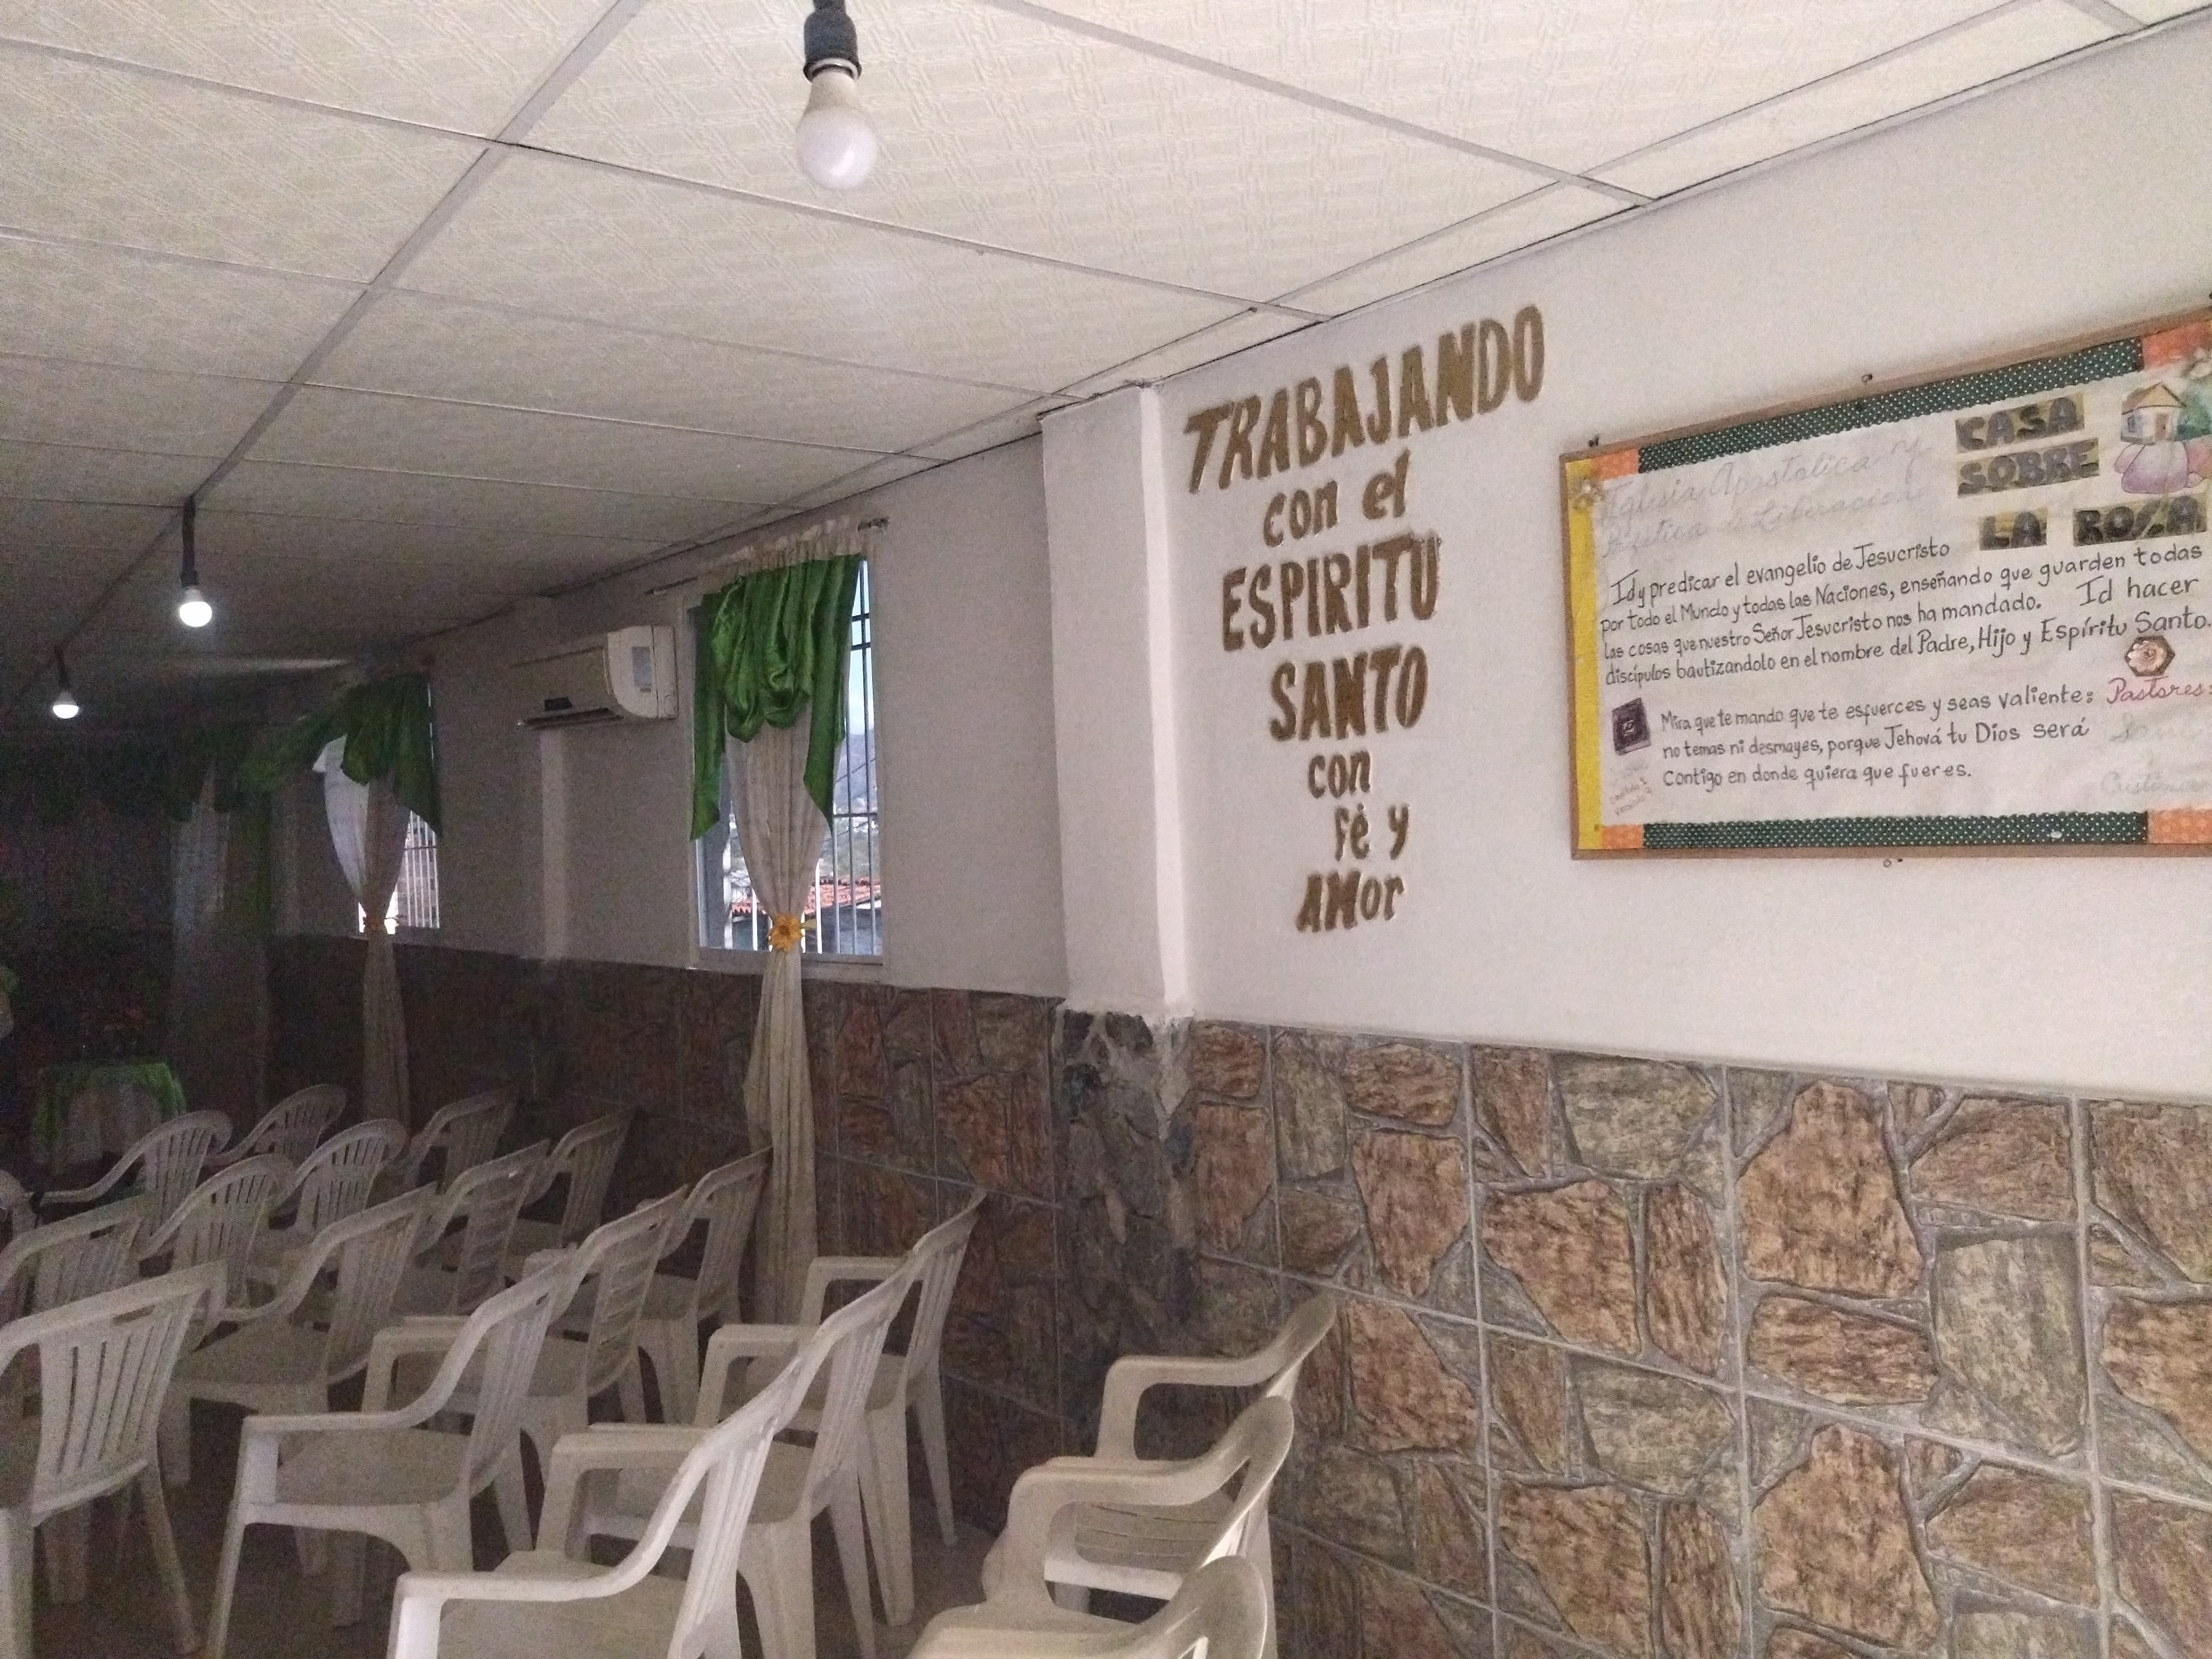 TRABAJANDO
con el
ESPIRITU
SANTO
con
Fé y
AMor
CASA
SOBRE
LA ROCA
Iglesia Apostolica y
de Liberacion
Id y predicar el evangelio de Jesucristo
por todo el Mundo y todas las Naciones, enseñando que guarden todas
las cosas que nuestro Señor Jesucristo nos ha mandado. Id hacer
discípulos bautizandolo en el nombre del Padre, Hijo y Espíritu Santo.
Mira que te mando que te esfuerces y seas valiente:
no temas ni desmayes, porque Jehová tu Dios será
Contigo en donde quiera que fueres.
Pastores: